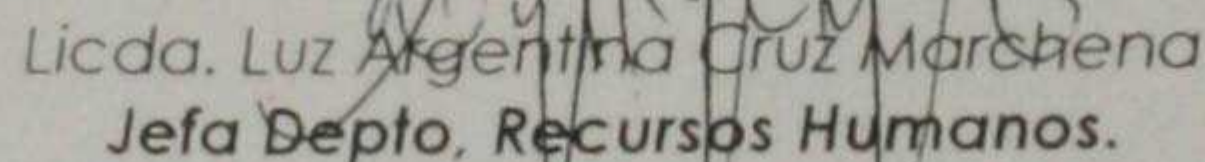 Licda. Luz Argentina Cruz Marchena
Jefa Depto. Recursos Humanos.